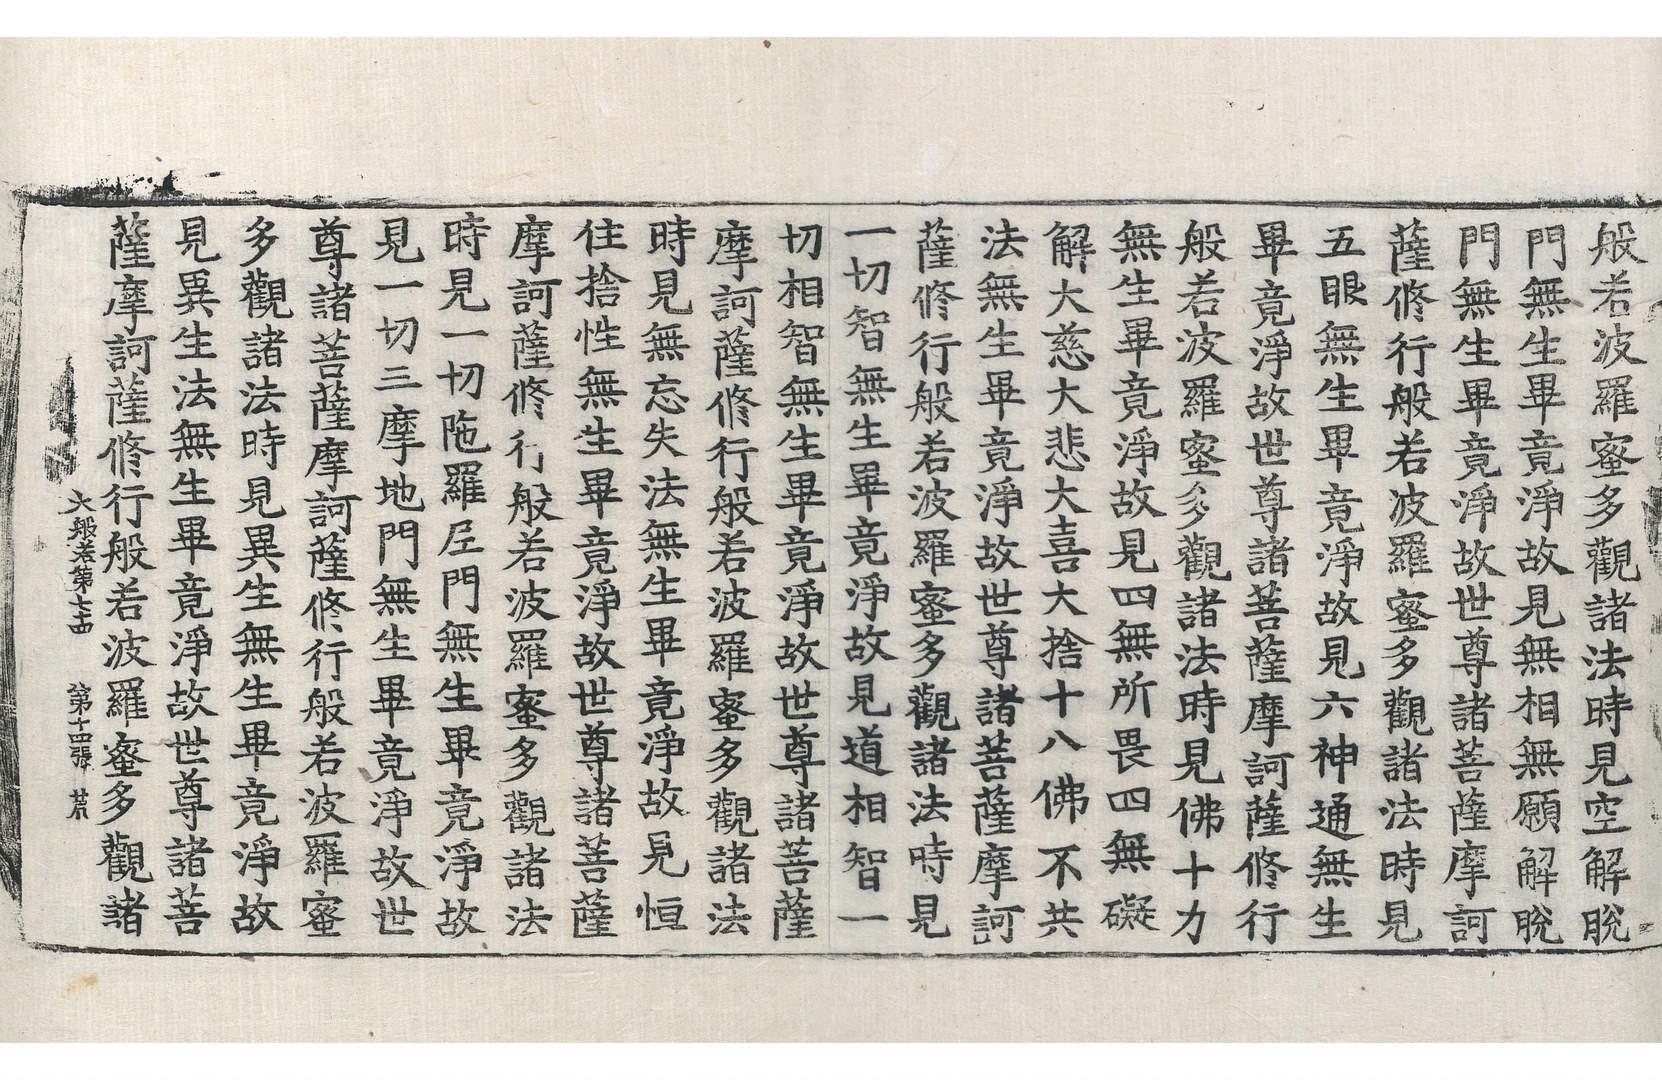 般若波羅蜜多觀諸法時見空解脫
門無生畢竟淨故見無相無願解脫
門無生畢竟淨故世尊諸菩薩摩訶
薩修行般若波羅蜜多觀諸法時見
五眼無生畢竟淨故見六神通無生
畢竟淨故世尊諸菩薩摩訶薩修行
般若波羅蜜多觀諸法時見佛十力
無生畢竟淨故見四無所畏四無礙
解大慈大悲大喜大捨十八佛不共
法無生畢竟淨故世尊諸菩薩摩訶
薩修行般若波羅蜜多觀諸法時見
一切智無生畢竟淨故見道相智一
切相智無生畢竟淨故世尊諸菩薩
摩訶薩修行般若波羅蜜多觀諸法
時見無忘失法無生畢竟淨故見恒
住捨性無生畢竟淨故世尊諸菩薩
摩訶薩修行般若波羅蜜多觀諸法
時見一切陁羅尼門無生畢竟淨故
見一切三摩地門無生畢竟淨故世
尊諸菩薩摩訶薩修行般若波羅蜜
多觀諸法時見異生無生畢竟淨故
見異生法無生畢竟淨故世尊諸菩
薩摩訶薩修行般若波羅蜜多觀諸
大般若第七十四 第十四張 荒